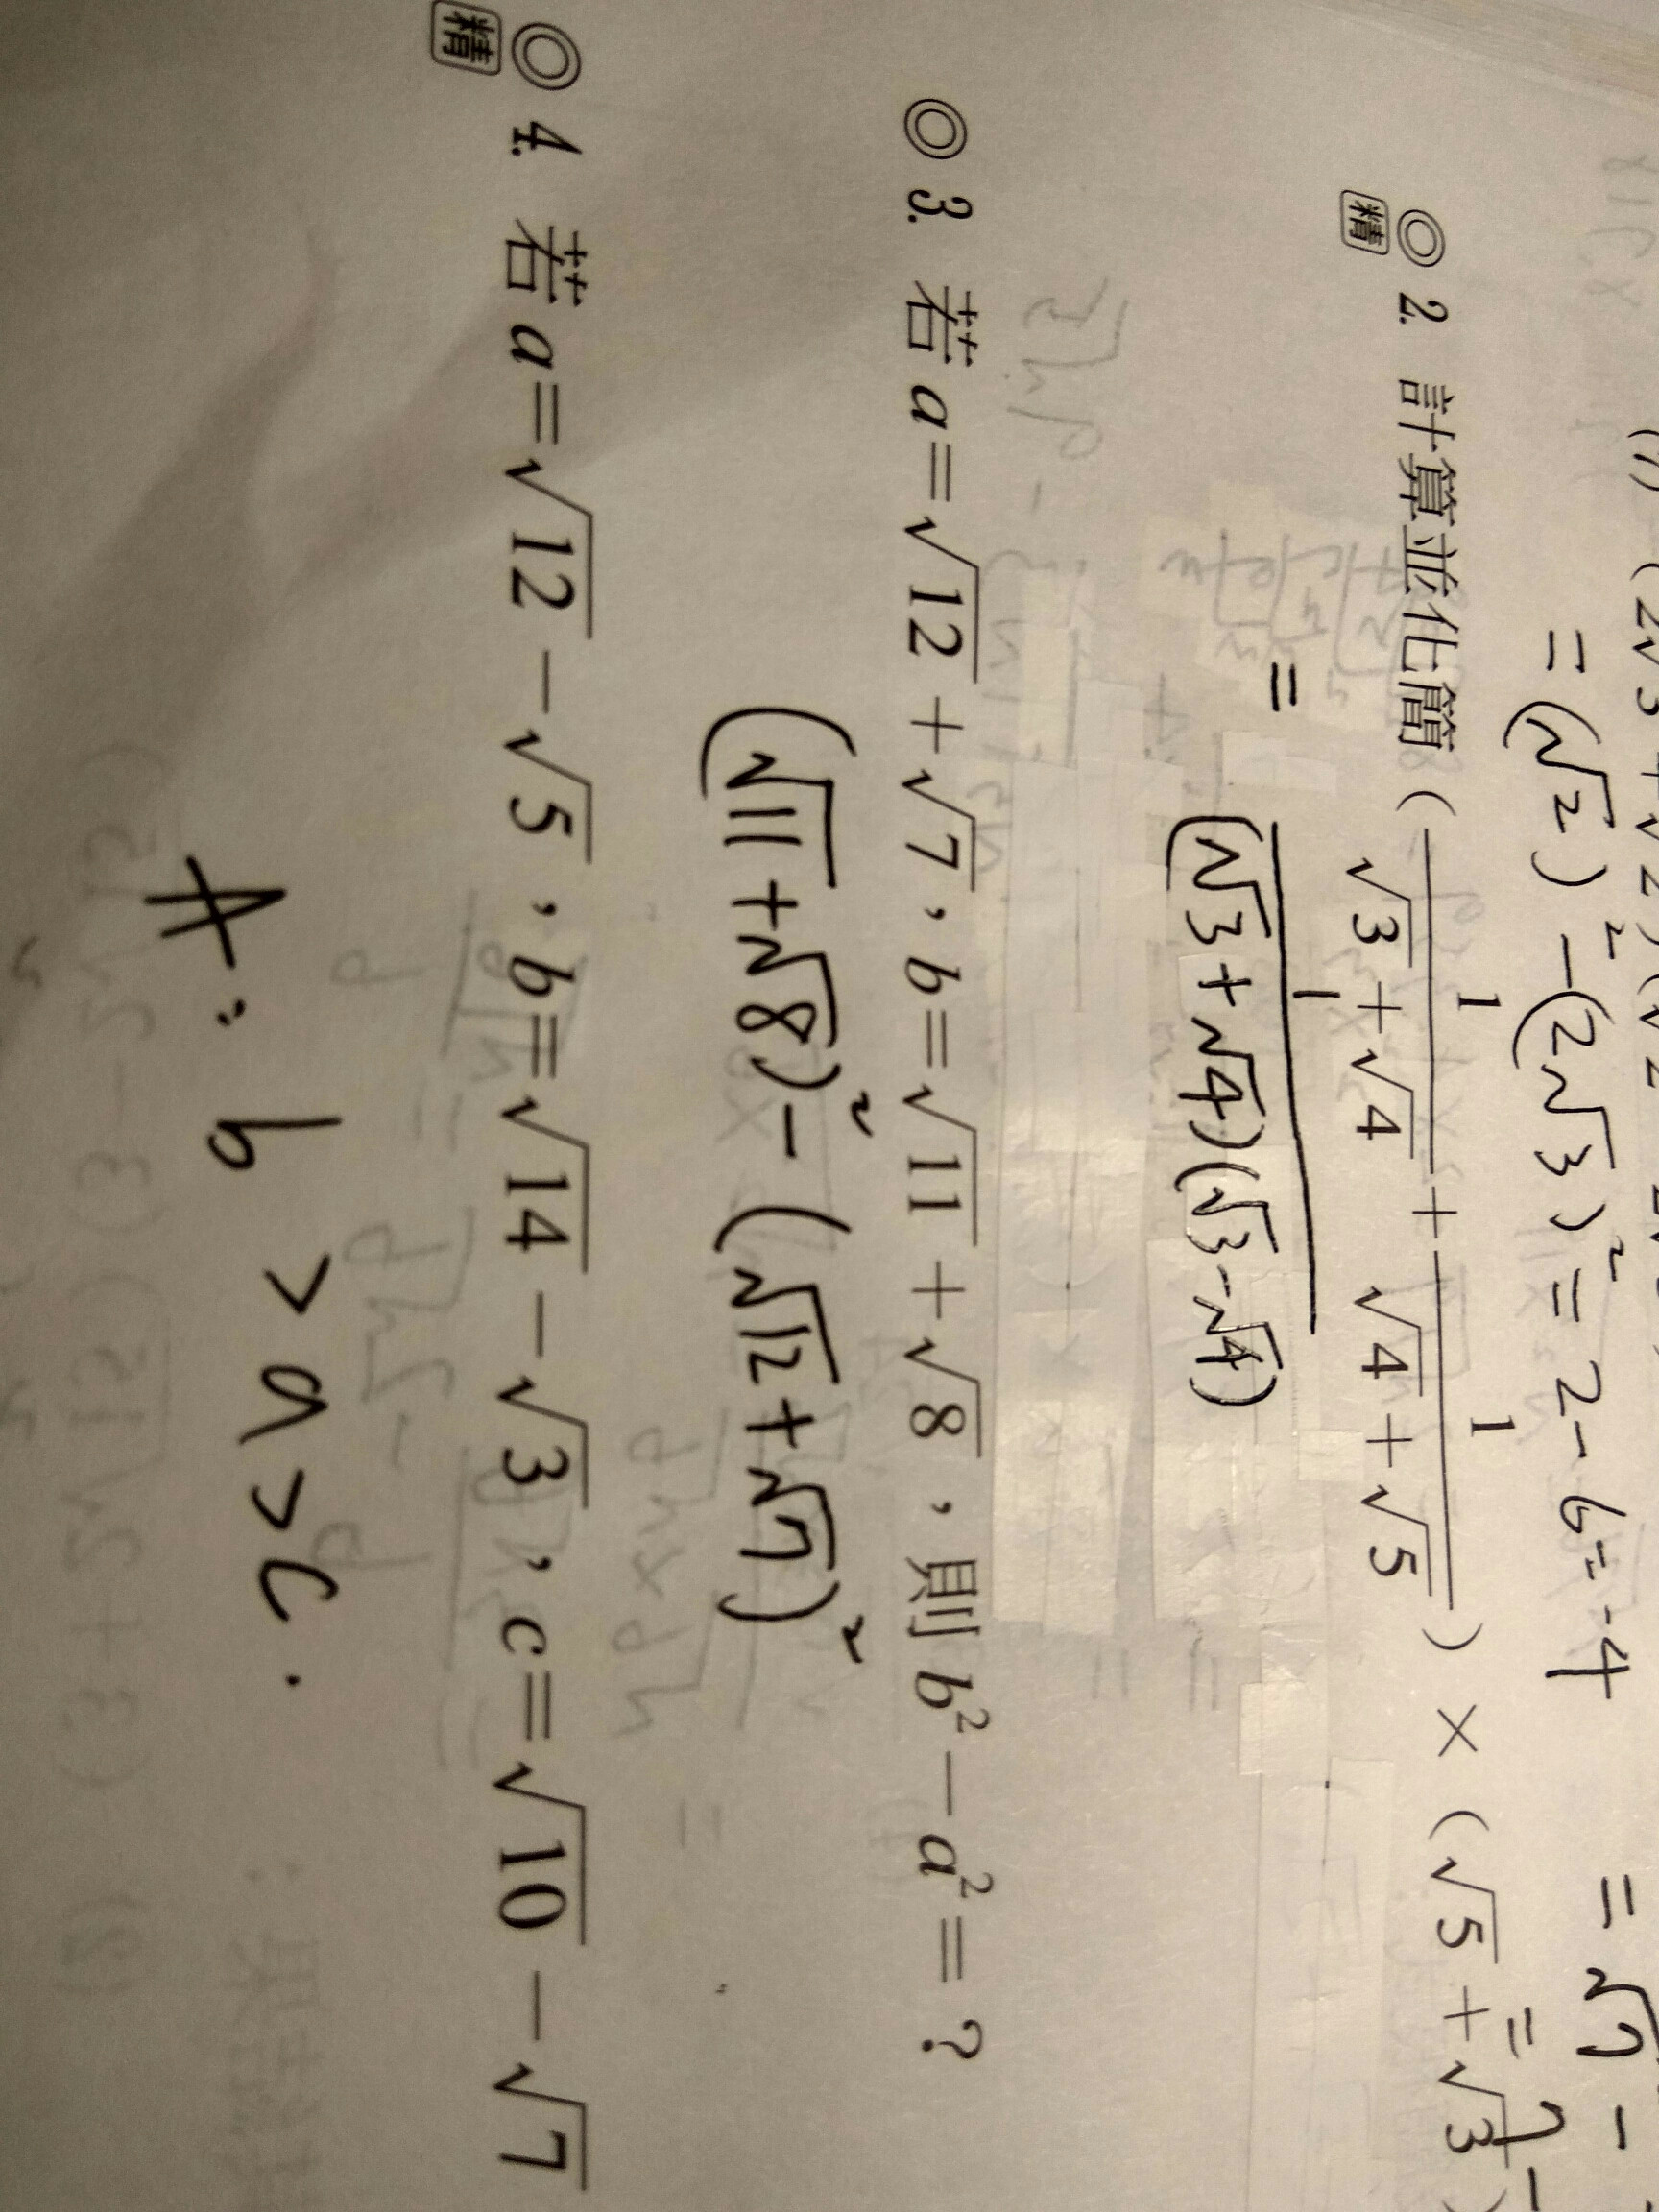 =(√2)²-(2√3)²=2-6=-4
◎2. 計算並化簡(1/(√3+√4)+1/(√4+√5))×(√5+√3)
精
= 1/((√3+√4)(√3-√4))
◎3. 若a=√12+√7,b=√11+√8,則b²-a²=?
(√11+√8)²-(√12+√7)²
◎4. 若a=√12-√5,b=√14-√3,c=√10-√7
精
A: b>a>c.